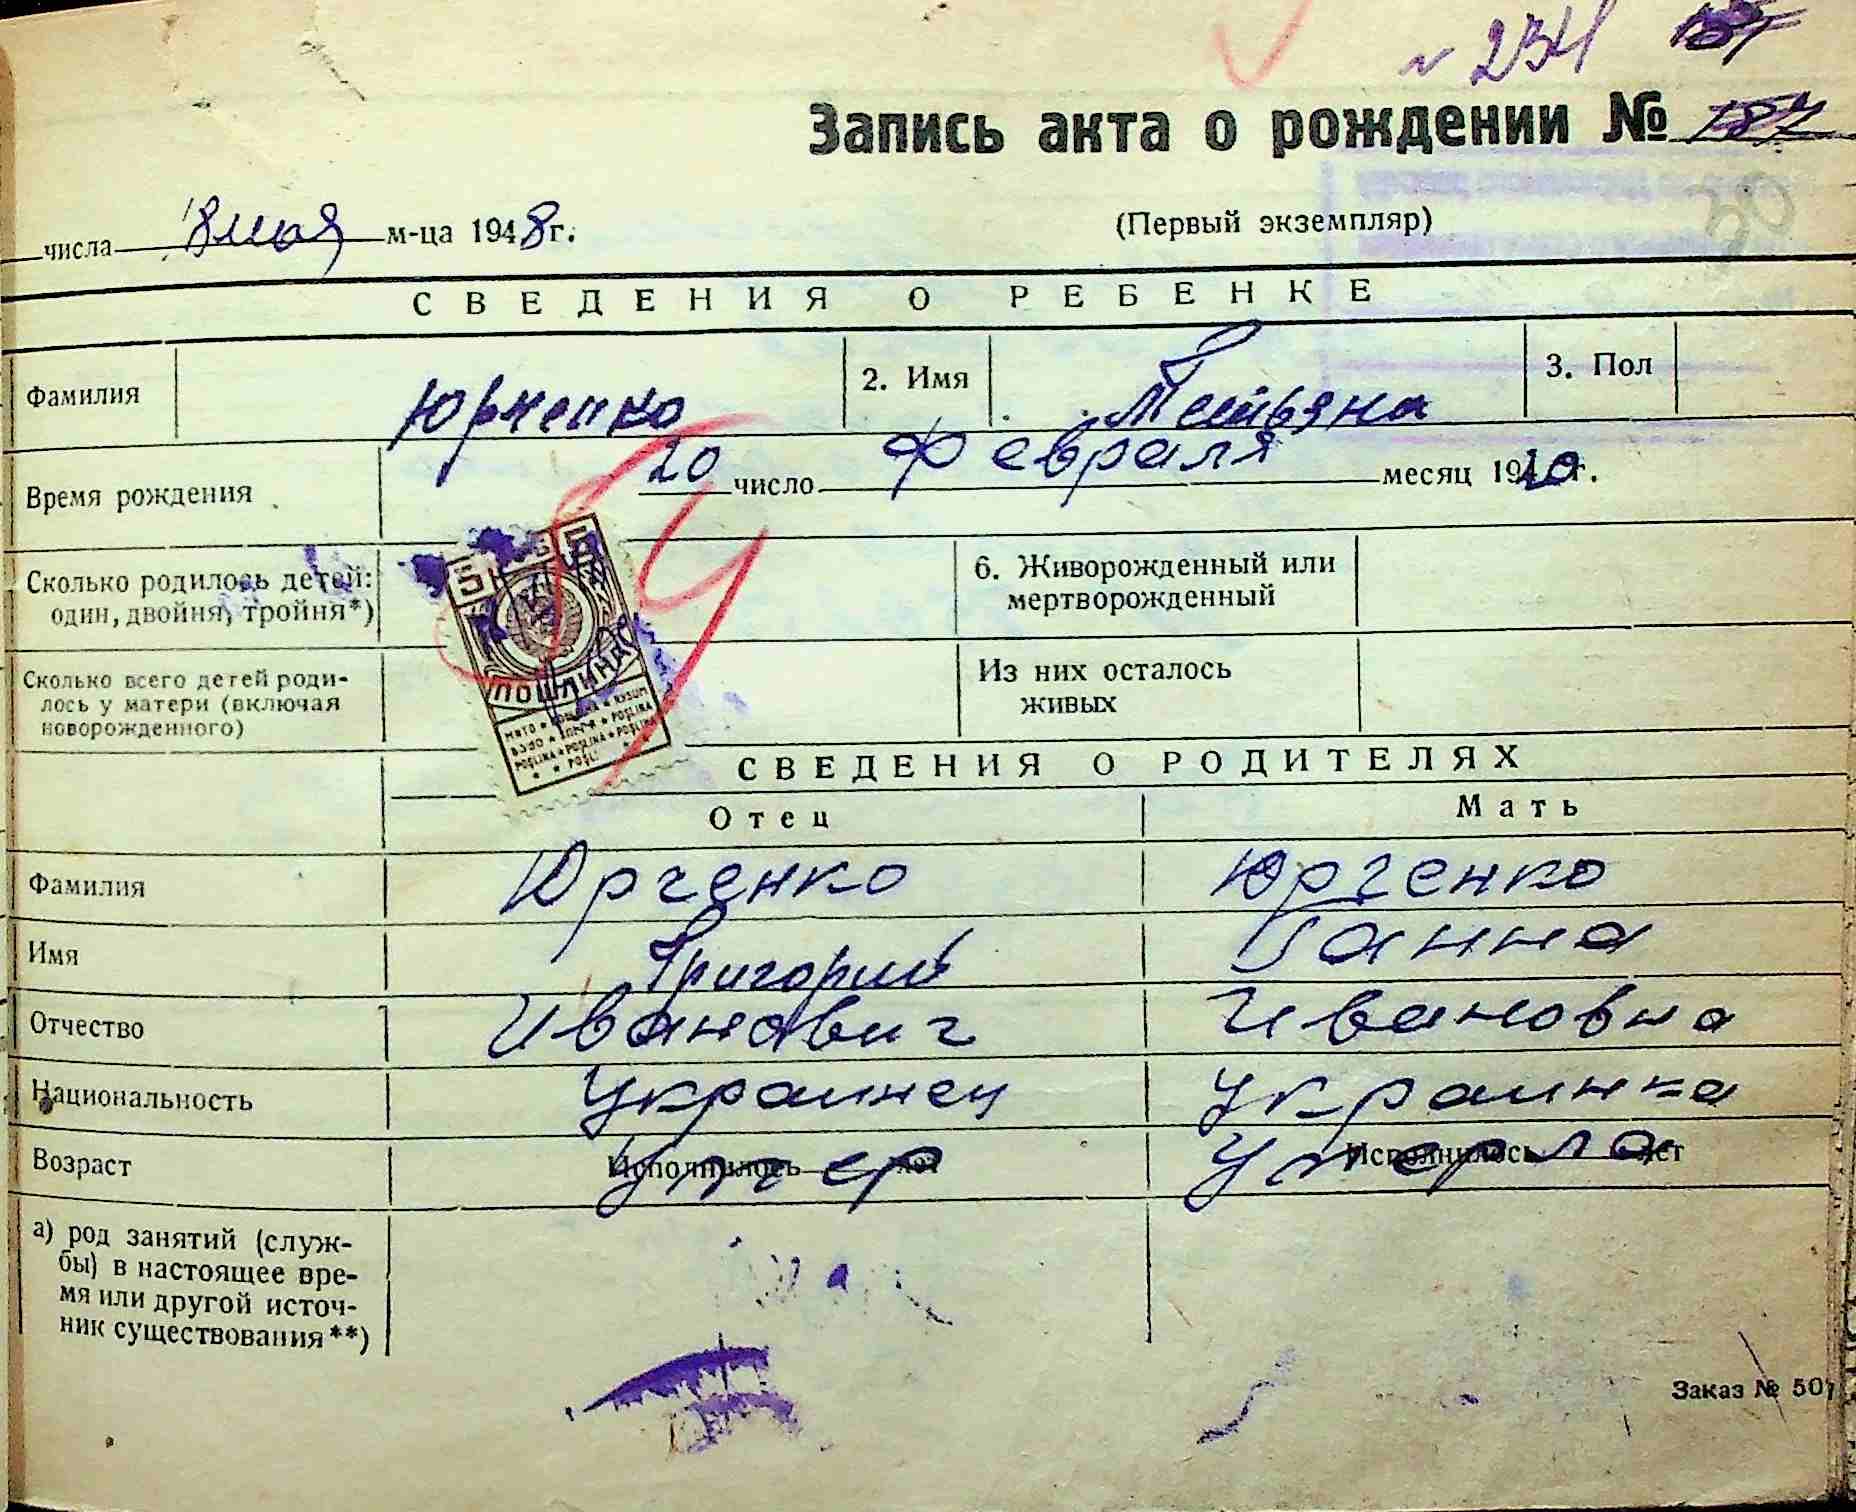 № 234
Запись акта о рождении № 187
числа 18 мая м-ца 1948 г.
(Первый экземпляр)
СВЕДЕНИЯ О РЕБЕНКЕ
Фамилия Юрченко 2. Имя Татьяна 3. Пол
Время рождения 20 число Февраля месяц 19 г.
Сколько родилось детей: один, двойня, тройня*)
6. Живорожденный или мертворожденный
Сколько всего детей родилось у матери (включая новорожденного)
Из них осталось живых
ПОШЛИНА
СВЕДЕНИЯ О РОДИТЕЛЯХ
Отец Мать
Фамилия Юрченко Юрченко
Имя Григорий Ганна
Отчество Иванович Ивановна
Национальность Украинец Украинка
Возраст Исполнилось лет Умер Исполнилось лет Умерла
а) род занятий (служ-
бы) в настоящее вре-
мя или другой источ-
ник существования**)
Заказ № 507